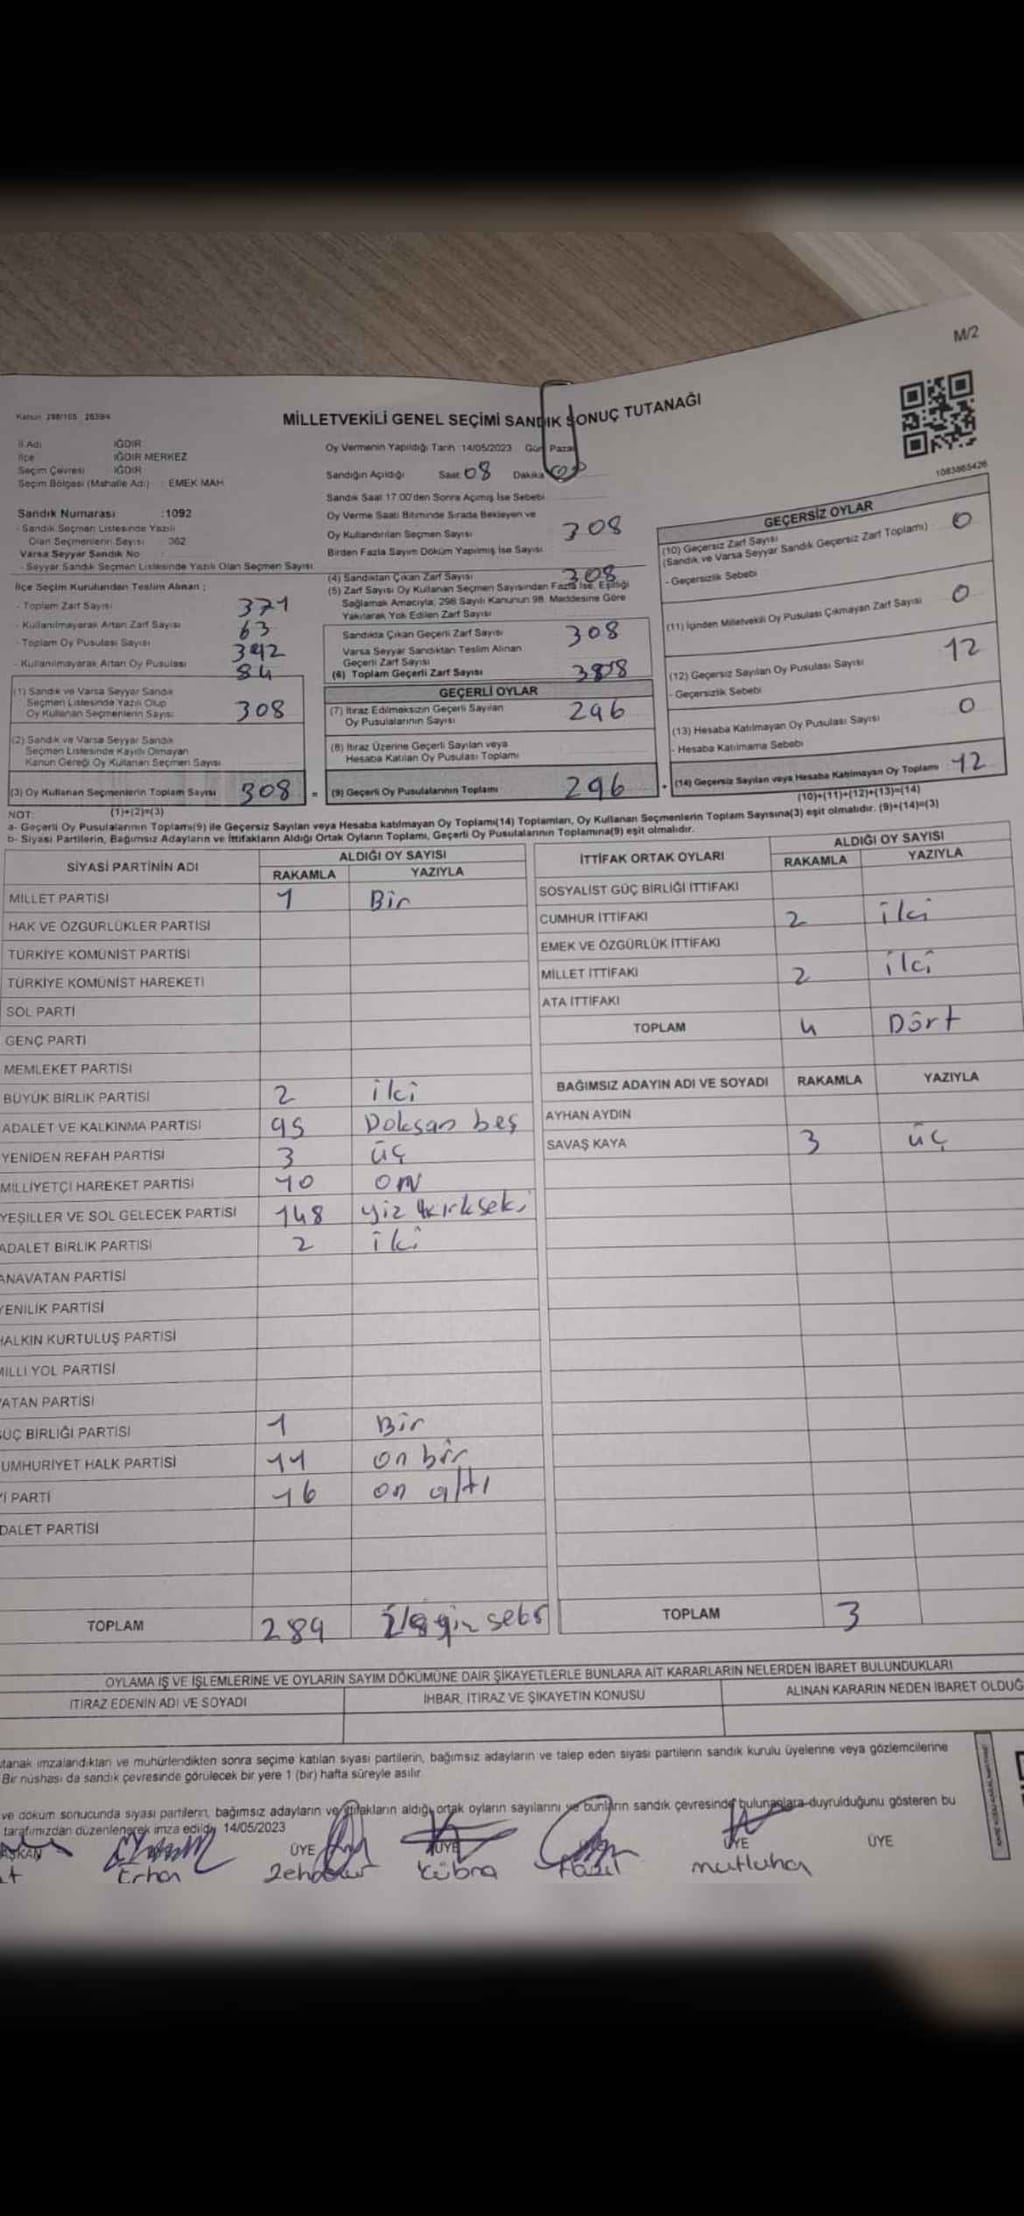 M/2
Kanun 298/105 2839/4
MİLLETVEKİLİ GENEL SEÇİMİ SANDIK SONUÇ TUTANAĞI
1083865426
İl Adı IĞDIR
İlçe IĞDIR MERKEZ
Seçim Çevresi IĞDIR
Seçim Bölgesi (Mahalle Adı) : EMEK MAH
Sandık Numarası :1092
- Sandık Seçmen Listesinde Yazılı
Olan Seçmenlerin Sayısı : 362
Varsa Seyyar Sandık No
- Seyyar Sandık Seçmen Listesinde Yazılı Olan Seçmen Sayısı
İlçe Seçim Kurulundan Teslim Alınan ;
- Toplam Zarf Sayısı 371
- Kullanılmayarak Artan Zarf Sayısı 63
- Toplam Oy Pusulası Sayısı 392
- Kullanılmayarak Artan Oy Pusulası 84
(1) Sandık ve Varsa Seyyar Sandık
Seçmen Listesinde Yazılı Olup
Oy Kullanan Seçmenlerin Sayısı 308
(2) Sandık ve Varsa Seyyar Sandık
Seçmen Listesinde Kayıtlı Olmayan
Kanun Gereği Oy Kullanan Seçmen Sayısı
(3) Oy Kullanan Seçmenlerin Toplam Sayısı 308 =
(1)+(2)=(3)
Oy Vermenin Yapıldığı Tarih :14/05/2023 Gün Pazar
Sandığın Açıldığı Saat 08 Dakika 00
Sandık Saat 17.00'den Sonra Açımış İse Sebebi
Oy Verme Saati Bitiminde Sırada Bekleyen ve
Oy Kullandırılan Seçmen Sayısı 308
Birden Fazla Sayım Döküm Yapılmış İse Sayısı
(4) Sandıktan Çıkan Zarf Sayısı 308
(5) Zarf Sayısı Oy Kullanan Seçmen Sayısından Fazla İse, Eşitliği
Sağlamak Amacıyla, 298 Sayılı Kanunun 98. Maddesine Göre
Yakılarak Yok Edilen Zarf Sayısı
Sandıkta Çıkan Geçerli Zarf Sayısı 308
Varsa Seyyar Sandıktan Teslim Alınan
Geçerli Zarf Sayısı
(6) Toplam Geçerli Zarf Sayısı
GEÇERLİ OYLAR
(7) İtiraz Edilmeksizin Geçerli Sayılan
Oy Pusulalarının Sayısı 296
(8) İtiraz Üzerine Geçerli Sayılan veya
Hesaba Katılan Oy Pusulası Toplamı
(9) Geçerli Oy Pusulalarının Toplamı 296 +
GEÇERSİZ OYLAR
(10) Geçersiz Zarf Sayısı 0
(Sandık ve Varsa Seyyar Sandık Geçersiz Zarf Toplamı)
- Geçersizlik Sebebi
(11) İçinden Milletvekili Oy Pusulası Çıkmayan Zarf Sayısı 0
(12) Geçersiz Sayılan Oy Pusulası Sayısı 12
- Geçersizlik Sebebi
(13) Hesaba Katılmayan Oy Pusulası Sayısı 0
- Hesaba Katılmama Sebebi
(14) Geçersiz Sayılan veya Hesaba Katılmayan Oy Toplamı 12
(10)+(11)+(12)+(13)=(14)
NOT:
a- Geçerli Oy Pusulalarının Toplamı(9) ile Geçersiz Sayılan veya Hesaba katılmayan Oy Toplamı(14) Toplamları, Oy Kullanan Seçmenlerin Toplam Sayısına(3) eşit olmalıdır. (9)+(14)=(3)
b- Siyasi Partilerin, Bağımsız Adayların ve İttifakların Aldığı Ortak Oyların Toplamı, Geçerli Oy Pusulalarının Toplamına(9) eşit olmalıdır.
SİYASİ PARTİNİN ADI ALDIĞI OY SAYISI
RAKAMLA YAZIYLA
MİLLET PARTİSİ 1 Bir
HAK VE ÖZGÜRLÜKLER PARTİSİ
TÜRKİYE KOMÜNİST PARTİSİ
TÜRKİYE KOMÜNİST HAREKETİ
SOL PARTİ
GENÇ PARTİ
MEMLEKET PARTİSİ
BÜYÜK BİRLİK PARTİSİ 2 iki
ADALET VE KALKINMA PARTİSİ 95 Doksan beş
YENİDEN REFAH PARTİSİ 3 üç
MİLLİYETÇİ HAREKET PARTİSİ 10 on
YEŞİLLER VE SOL GELECEK PARTİSİ 148 yiz kırkseki
ADALET BİRLİK PARTİSİ 2 iki
ANAVATAN PARTİSİ
YENİLİK PARTİSİ
HALKIN KURTULUŞ PARTİSİ
MİLLİ YOL PARTİSİ
VATAN PARTİSİ
GÜÇ BİRLİĞİ PARTİSİ 1 Bir
CUMHURİYET HALK PARTİSİ 11 on bir
İYİ PARTİ 16 on altı
ADALET PARTİSİ
TOPLAM 289
İTTİFAK ORTAK OYLARI ALDIĞI OY SAYISI
RAKAMLA YAZIYLA
SOSYALİST GÜÇ BİRLİĞİ İTTİFAKI
CUMHUR İTTİFAKI 2 iki
EMEK VE ÖZGÜRLÜK İTTİFAKI
MİLLET İTTİFAKI 2 iki
ATA İTTİFAKI
TOPLAM 4 Dört
BAĞIMSIZ ADAYIN ADI VE SOYADI RAKAMLA YAZIYLA
AYHAN AYDIN
SAVAŞ KAYA 3 üç
TOPLAM 3
OYLAMA İŞ VE İŞLEMLERİNE VE OYLARIN SAYIM DÖKÜMÜNE DAİR ŞİKAYETLERLE BUNLARA AİT KARARLARIN NELERDEN İBARET BULUNDUKLARI
İTİRAZ EDENİN ADI VE SOYADI İHBAR, İTİRAZ VE ŞİKAYETİN KONUSU ALINAN KARARIN NEDEN İBARET OLDUĞ
utanak imzalandıktan ve mühürlendikten sonra seçime katılan siyasi partilerin, bağımsız adayların ve talep eden siyasi partilerin sandık kurulu üyelerine veya gözlemcilerine
Bir nüshası da sandık çevresinde görülecek bir yere 1 (bir) hafta süreyle asılır
ve döküm sonucunda siyasi partilerin, bağımsız adayların ve ittifakların aldığı ortak oyların sayılarını ve bunların sandık çevresinde bulunanlara duyrulduğunu gösteren bu
tarafımızdan düzenlenerek imza edildi. 14/05/2023
AŞKAN ÜYE ÜYE ÜYE ÜYE
Erhan Kübra mutluhan